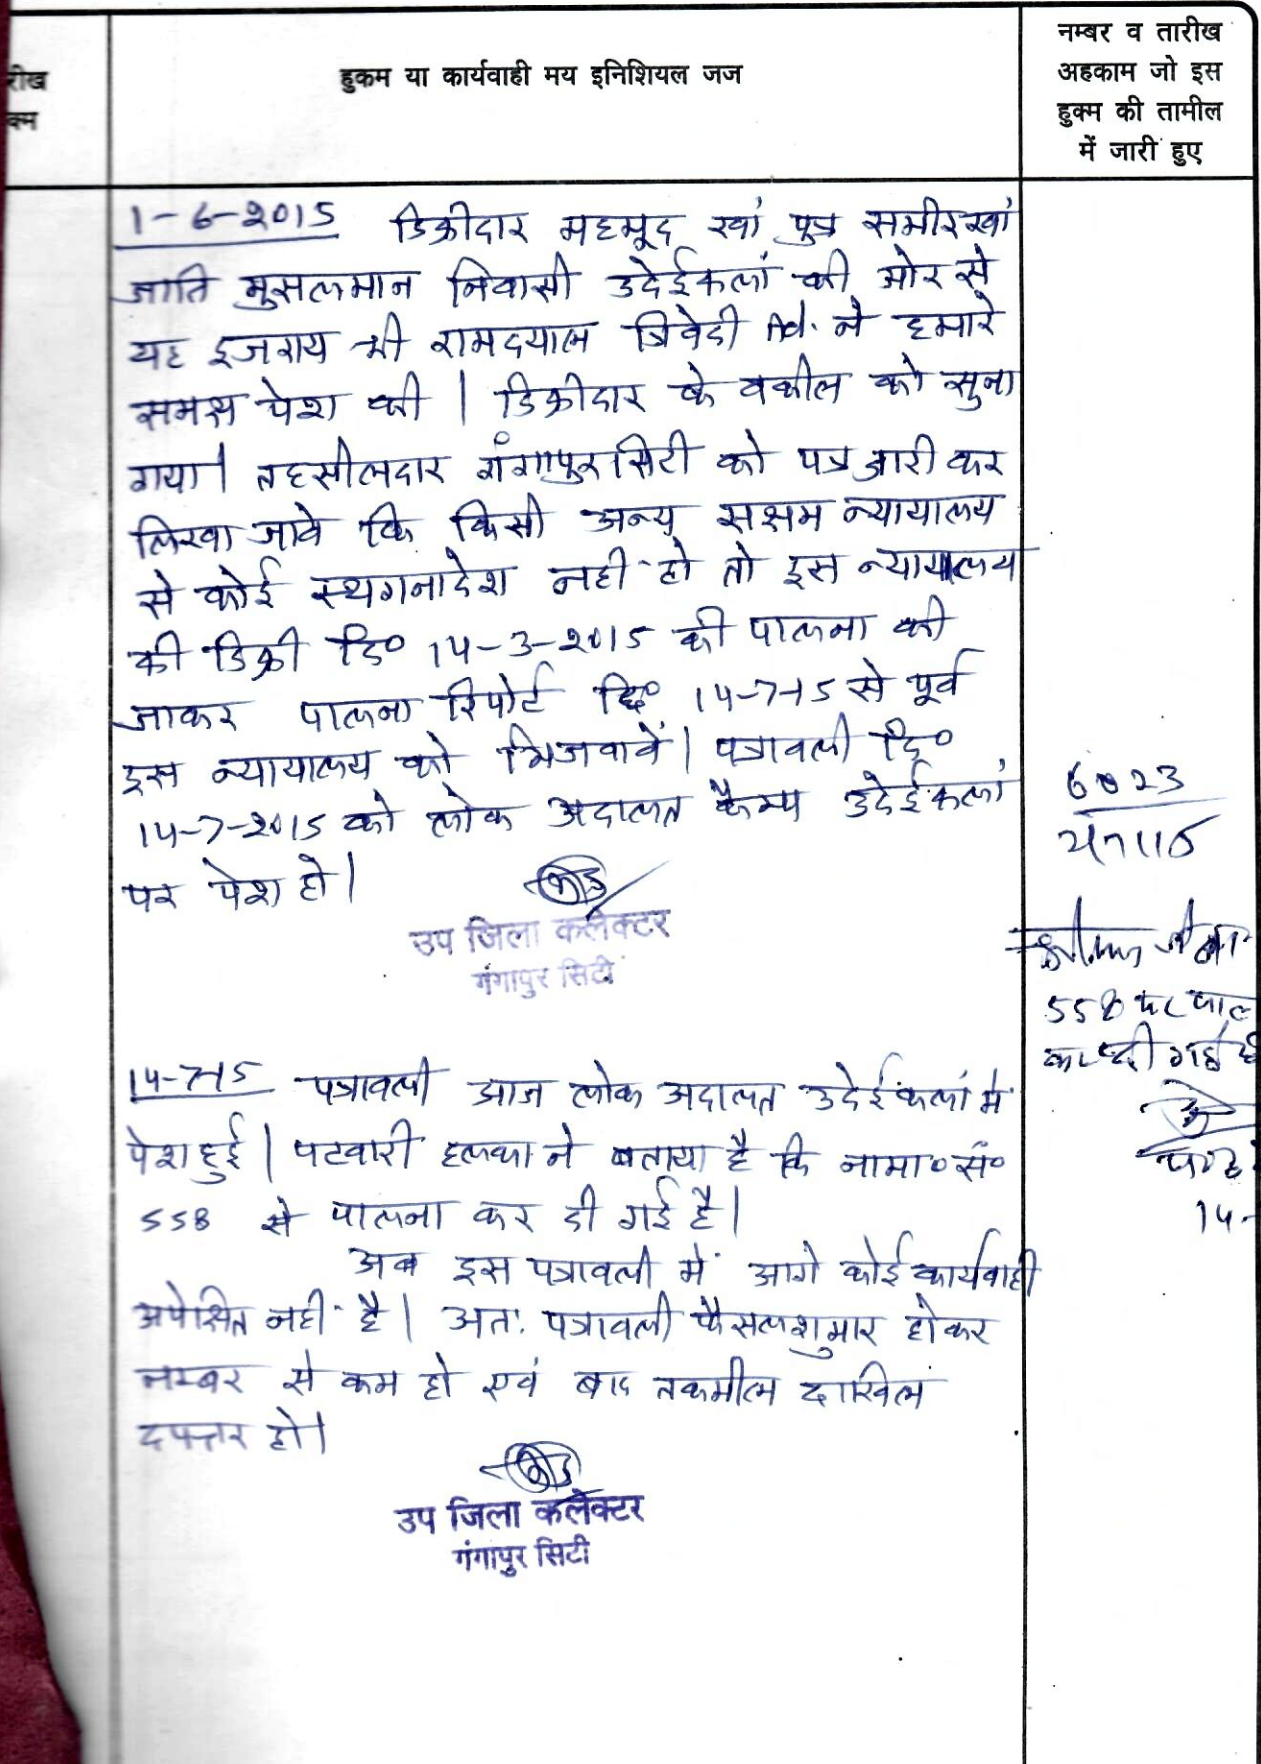 रीख
क्म
हुकम या कार्यवाही मय इनिशियल जज
नम्बर व तारीख
अहकाम जो इस
हुक्म की तामील
में जारी हुए
1-6-2015 डिक्रीदार महमूद खां पुत्र समीर खां
जाति मुसलमान निवासी उदेईकलां की ओर से
यह इजराय श्री रामदयाल त्रिवेदी Ad. ने हमारे
समक्ष पेश की | डिक्रीदार के वकील को सुना
गया | तहसीलदार गंगापुर सिटी को पत्र जारी कर
लिखा जावे कि किसी अन्य सक्षम न्यायालय
से कोई स्थगनादेश नही हो तो इस न्यायालय
की डिक्री दि० 14-3-2015 की पालना की
जाकर पालना रिपोर्ट दि० 14-7-15 से पूर्व
इस न्यायालय को भिजवावें | पत्रावली दि०
14-7-2015 को लोक अदालत कैम्प उदेईकलां
पर पेश हो |
उप जिला कलेक्टर
गंगापुर सिटी
6023
558
14-7-15 पत्रावली आज लोक अदालत उदेईकलां में
पेश हुई | पटवारी हल्का ने बताया है कि नामा० सं०
558 से पालना कर दी गई है |
अब इस पत्रावली में आगे कोई कार्यवाही
अपेक्षित नही है | अतः पत्रावली फैसलशुमार होकर
नम्बर से कम हो एवं बाद तकमील दाखिल
दफ्तर हो |
14-
उप जिला कलेक्टर
गंगापुर सिटी